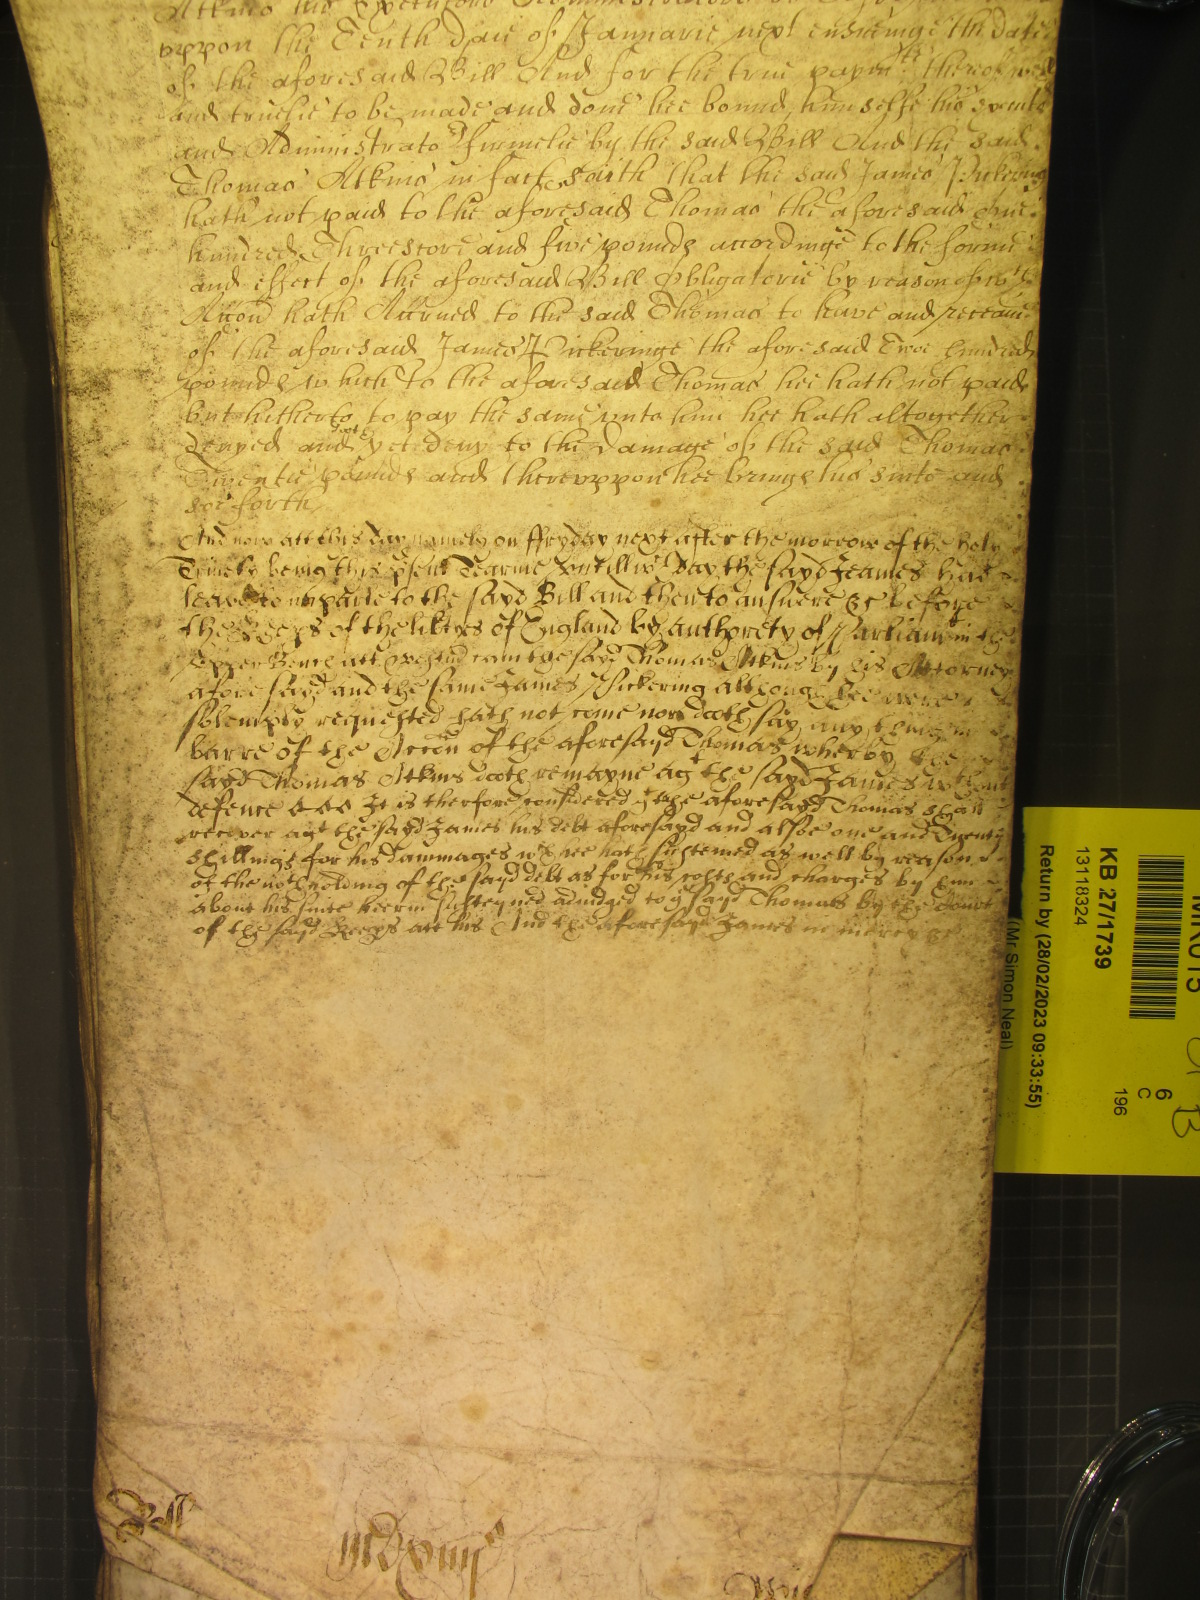 Atkins his Executors Administrators or
vppon the Tenth daie of Januarie next ensueinge the date
of the aforesaid Bill And for the true paymt thereof well
and truelie to be made and done hee bound himselfe his
and Administrators firmelie by the said Bill And the said
Thomas Atkins in fact saith that the said James Pickering
hath not paid to the aforesaid Thomas the aforesaid One
hundred Threescore and five pounds accordinge to the forme
and effect of the aforesaid Bill Obligatorie by reason of wch
Accon hath Accrued to the said Thomas to have and receave
of the aforesaid James Pickeringe the aforesaid Twoe hundred
pounds which to the aforesaid Thomas hee hath not paid
but hitherto to pay the same unto him hee hath altogether
denyed and doth yet deny to the Damage of the said Thomas
Twentie pounds and therevppon hee brings his suite and
soe forth
And now att this day namely on ffryday next after the morrow of the holy
Trinety being this psent Tearme vntill wch day the sayd Jeames had
leave to imparle to the sayd Bill and then to answere &c before
the Keeps of the libtyes of England by authorety of Parliamt in the
Vpper Bench att Westmr came the sayd Thomas Atkins by his Attorney
aforesayd and the same James Pickering although hee were
solemply requested hath not come nor doth say any thing in
barre of the Accon of the aforesayd Thomas wherby the
sayd Thomas Atkins doth remayne agt the sayd James without
defence &c It is therfore considered yt the aforesayd Thomas shall
recover agt the sayd James his debt aforesayd and alsoe one and Twenty
shillings for his dammages wch hee hath susteined as well by reason
of the withholding of the sayd debt as for his costs and charges by him
about his suite herein susteyned adiudged to ye sayd Thomas by the Court
of the sayd Keeps att his And the aforesayd James in mercy &c
mdxviij
MR015
KB 27/1739
13118324
Return by (28/02/2023 09:33:55)
(Mr Simon Neal)
6
C
196